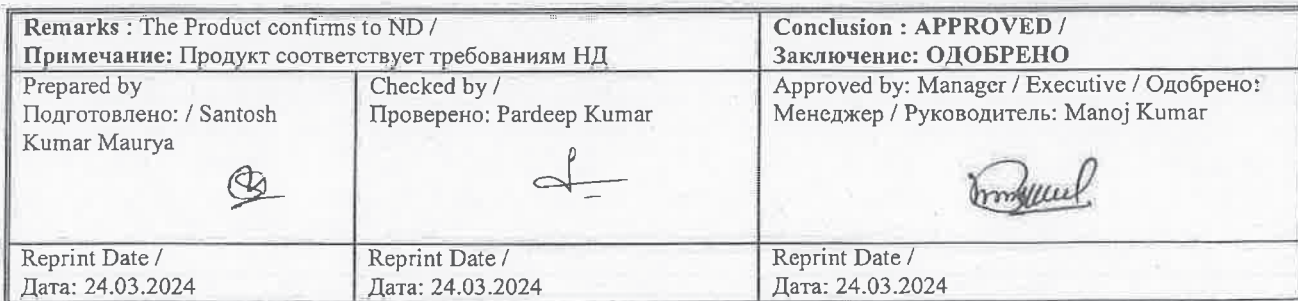 Remarks : The Product confirms to ND /
Примечание: Продукт соответствует требованиям НД
Conclusion : APPROVED /
Заключение: ОДОБРЕНО
Prepared by
Подготовлено: / Santosh
Kumar Maurya
Checked by /
Проверено: Pardeep Kumar
Approved by: Manager / Executive / Одобрено:
Менеджер / Руководитель: Manoj Kumar
Reprint Date /
Дата: 24.03.2024
Reprint Date /
Дата: 24.03.2024
Reprint Date /
Дата: 24.03.2024